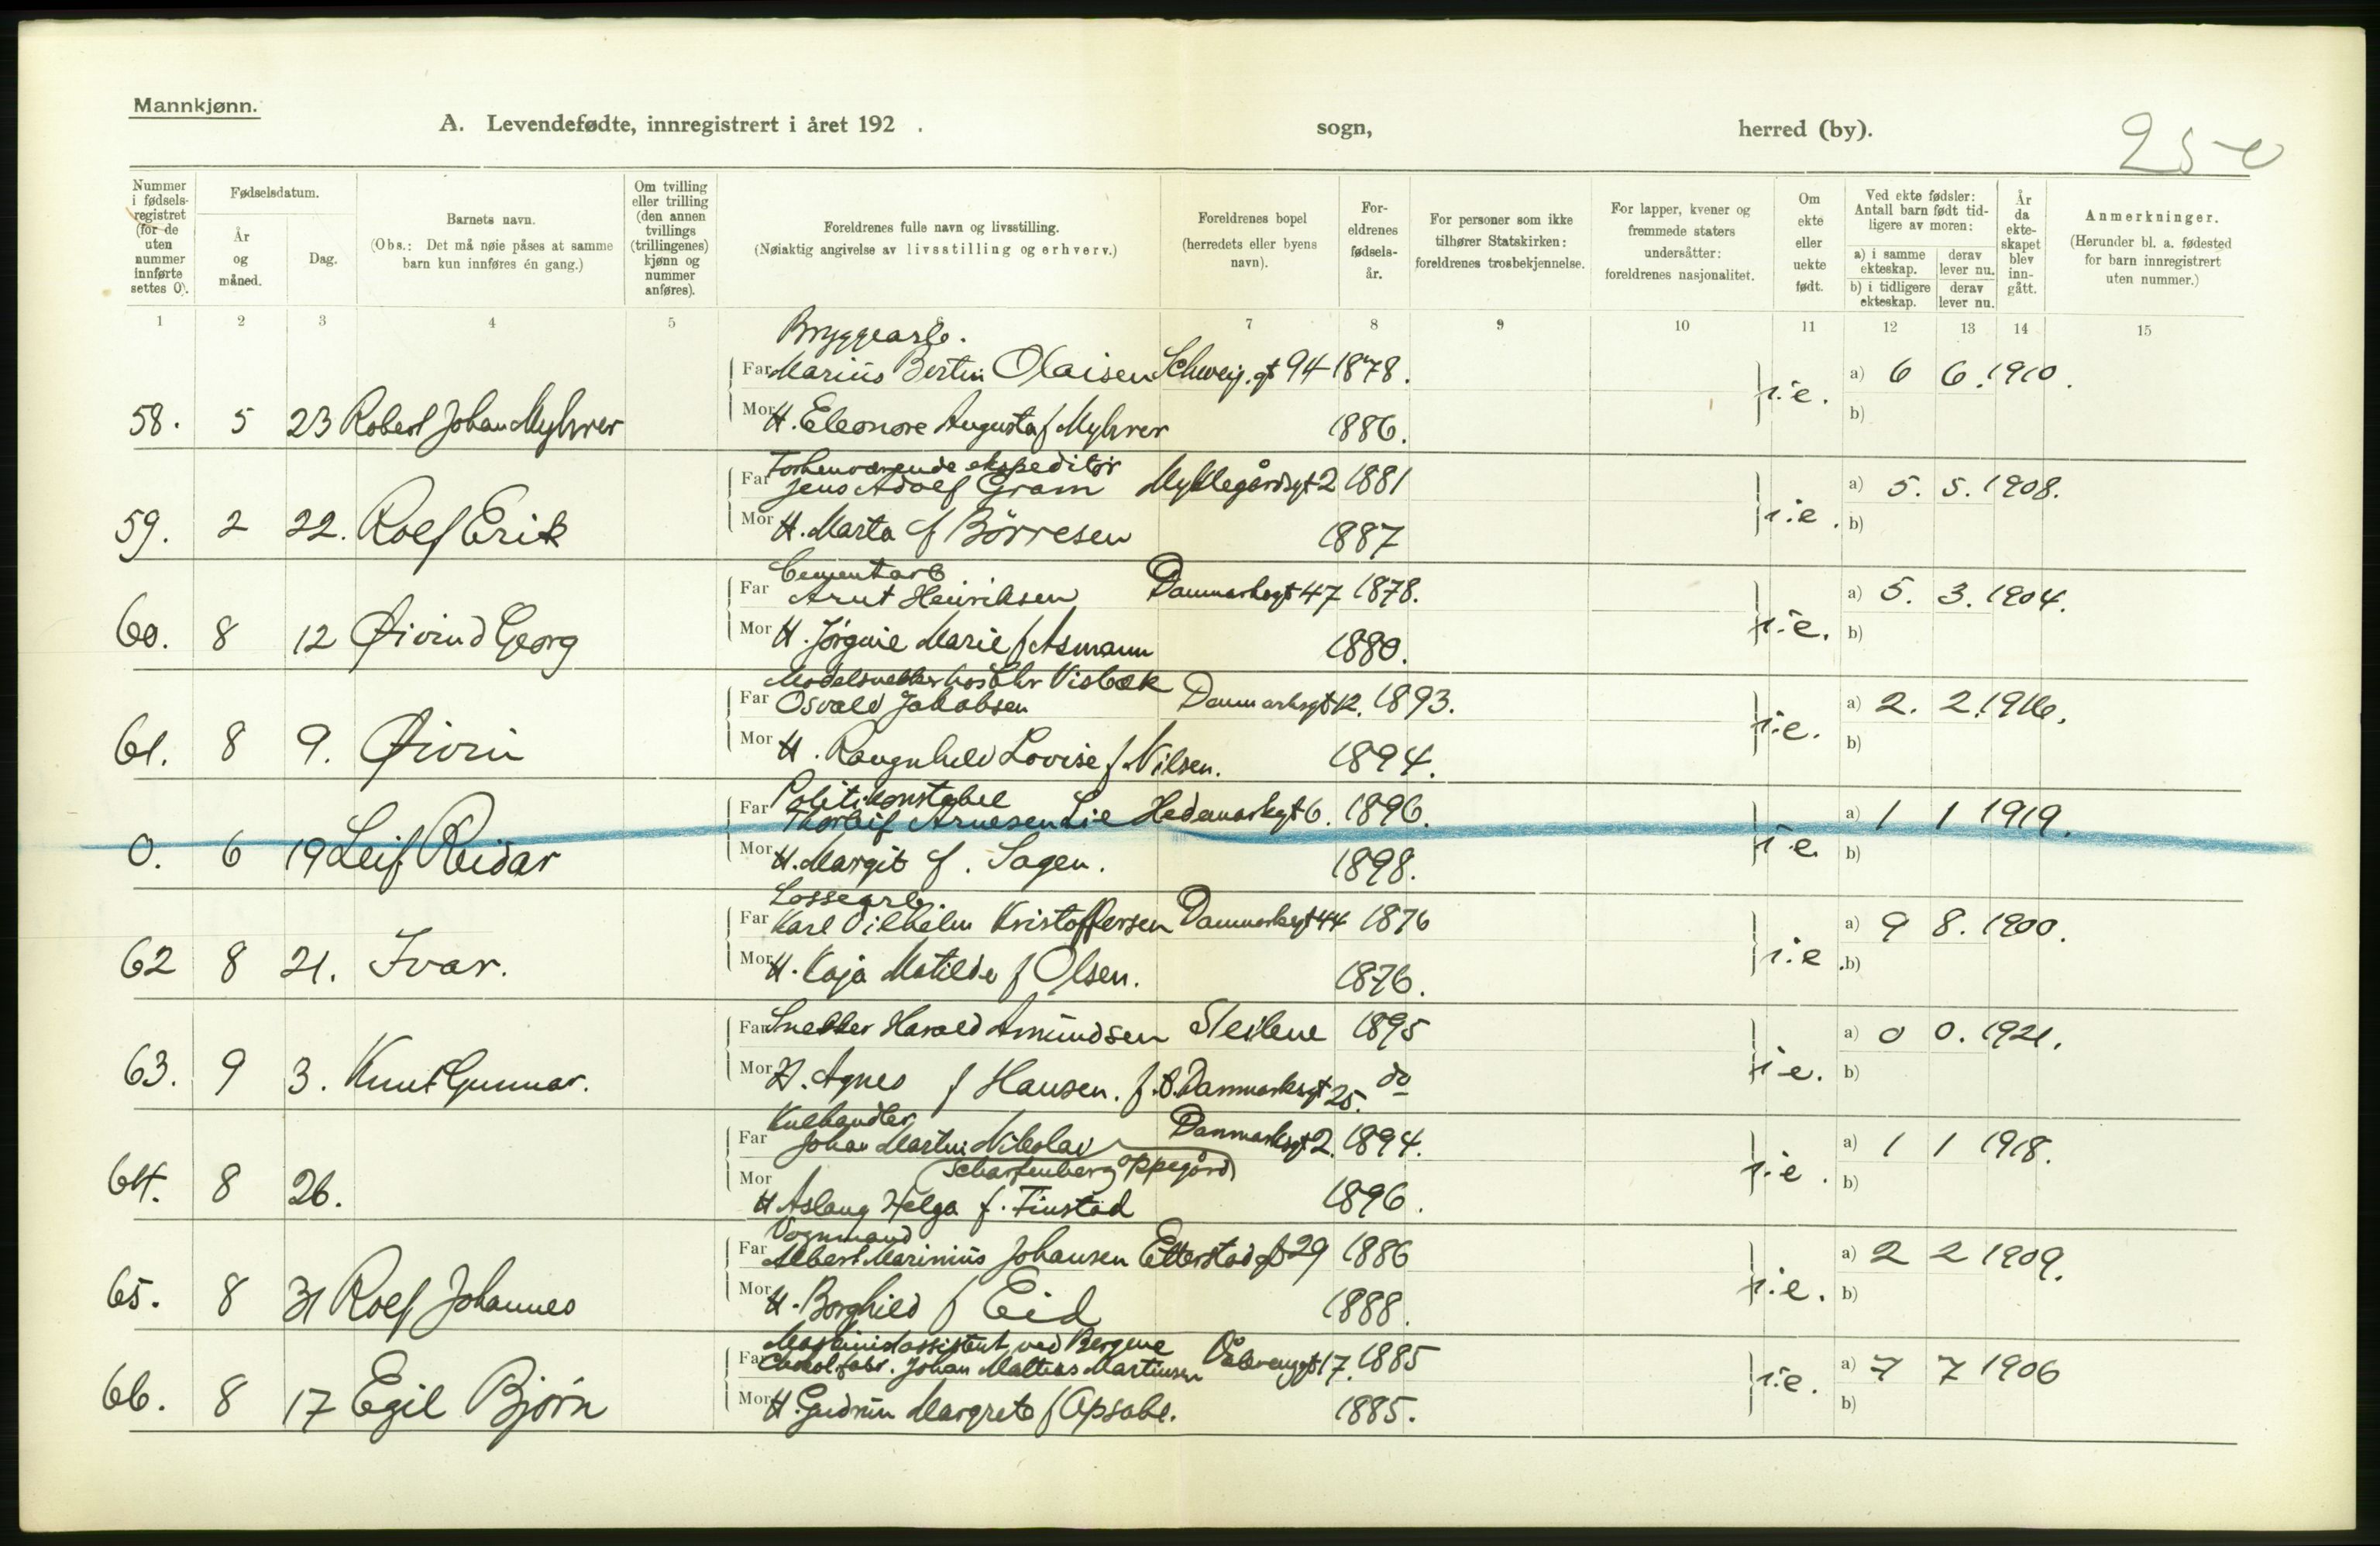 Mannkjønn.
A. Levendefødte, innregistrert i året 192 . sogn, herred (by).
25
Nummer i fødselsregistret (for de uten nummer innførte settes 0).
Fødselsdatum.
År og måned.
Dag.
Barnets navn.
(Obs.: Det må nøie påses at samme barn kun innføres én gang.)
Om tvilling eller trilling (den annen tvillings (trillingenes) kjønn og nummer anføres).
Foreldrenes fulle navn og livsstilling.
(Nøiaktig angivelse av livsstilling og erhverv.)
Foreldrenes bopel (herredets eller byens navn).
Foreldrenes fødselsår.
For personer som ikke tilhører Statskirken: foreldrenes trosbekjennelse.
For lapper, kvener og fremmede staters undersåtter: foreldrenes nasjonalitet.
Om ekte eller uekte født.
Ved ekte fødsler: Antall barn født tidligere av moren:
a) i samme ekteskap. derav lever nu.
b) i tidligere ekteskap. derav lever nu.
År da ekteskapet blev inngått.
Anmerkninger.
(Herunder bl. a. fødested for barn innregistrert uten nummer.)
1 2 3 4 5 6 7 8 9 10 11 12 13 14 15
Bryggearb.
Far Marius Bertin Olaisen Schweig.gt 94 1878. a) 6 6. 1910.
58. 5 23 Robert Johan Myhrer Mor H. Eleonore Augusta f Myhrer 1886. i.e. b)
Forhenværende ekspeditør
Far Jens Adolf Gram Møllegårdsgt 2 1881 a) 5. 5. 1908.
59. 2 22. Rolf Erik Mor H. Marta f Børresen 1887 i.e. b)
Cementarb
Far Arnt Henriksen Danmarksgt 47 1878. a) 5. 3. 1904.
60. 8 12 Øivind Georg Mor H. Jørgine Marie f Asmann 1880. i.e. b)
Modelsnekker hos Chr Visbæk
Far Osvald Jakobsen Danmarksgt 12. 1893. a) 2. 2. 1916.
61. 8 9. Øivin Mor H. Raugnhild Lovise f. Nilsen. 1894. i.e. b)
Politikonstabel
Far Thorleif Arnesen Lie Hedemarksgt 6. 1896. a) 1 1 1919.
0. 6 19 Leif Reidar Mor H. Margit f. Sagen. 1898. i.e. b)
Lossearb.
Far Karl Vilhelm Kristoffersen Danmarksgt 44 1876 a) 9 8. 1900.
62 8 21. Ivar. Mor H. Kaja Matilde f Olsen. 1876. i.e. b)
Far Snekker Harald Amundsen Steilene 1895 a) 0 0. 1921.
63. 9 3. Knut Gunnar. Mor H. Agnes f Hansen. f.B. Danmarksgt 25. do i.e. b)
Kulhandler
Far Johan Martin Nikolai Danmarksgt 2. 1894. a) 1 1 1918.
(Scharfenberg Oppegård)
64. 8 26. Mor H Aslaug Helga f. Finstad 1896. i.e. b)
Vognmand
Far Albert Marinius Johansen Etterstadgt 29 1886 a) 2 2 1909.
65. 8 31 Rolf Johannes Mor H. Borghild f Eid 1888. i.e. b)
Maskinistassistent ved Bergene
Far Chokol.fabr. Johan Mathias Martinsen Vålerenggt 17. 1885 a) 7 7 1906
66. 8 17 Egil Bjørn Mor H. Gudrun Margrete f Opsahl. 1885. i.e. b)